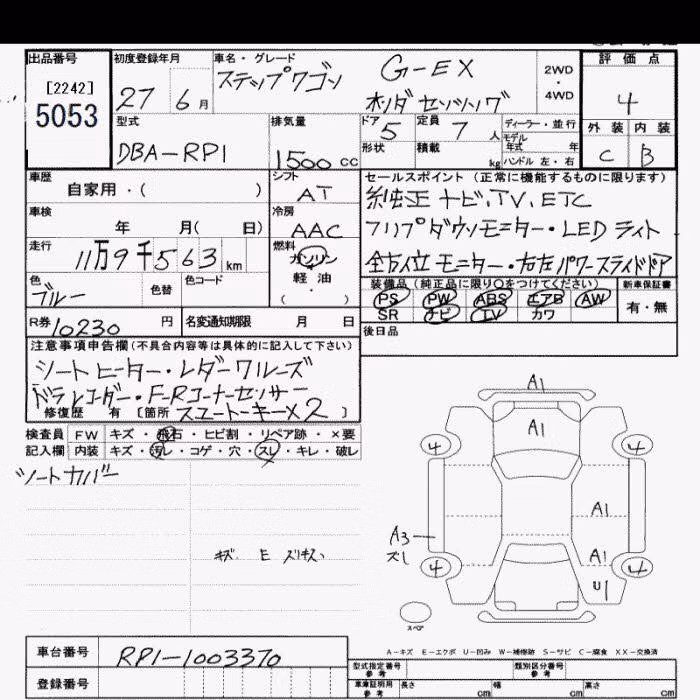 出品番号
[2242]
5053
初度登録年月
27 6月
車名・グレード
ステップワゴン G-EX
ホンダセンシング
2WD
4WD
評価点
4
外装 内装
C B
型式
DBA-RP1
排気量
1500 CC
ドア 5
定員 7 人
形状
積載 kg
ディーラー・並行
モデル年式 年
ハンドル 左・右
車歴
自家用・( )
シフト
AT
セールスポイント (正常に機能するものに限ります)
純正ナビ、TV、ETC
フリップダウンモニター・LEDライト
全方位モニター・右左パワースライドドア
車検
年 月( 日)
冷房
AAC
走行
11万9千563 km
燃料
ガソリン
軽油
( ・ )
色
ブルー
色替
色コード
装備品(純正品に限り○をつけてください)
PS PW ABS エアB AW
SR ナビ TV カワ
新車保証書
有・無
R券 10230 円
名変通知期限 月 日
後日品
注意事項申告欄(不具合内容等は具体的に記入して下さい)
シートヒーター・レダークルーズ
ドラレコーダー・F-Rコーナーセンサー
修復歴 有 [箇所 スマートキー×2 ]
検査員 FW キズ・飛石・ヒビ割・リペア跡・×要
記入欄 内装 キズ・汚レ・コゲ・穴・スレ・キレ・破レ
シートカバー
キズ E スリキズ
A1
A1
4 4
A1
A3
ズレ
A1
4 4
U1
スペア
A-キズ E-エクボ U-凹み W-補修跡 S-サビ C-腐食 XX-交換済
車台番号
RP1-1003370
登録番号
型式指定番号
参考
類別区分番号
参考
車庫証明用
参考
長さ cm 幅 cm 高さ cm